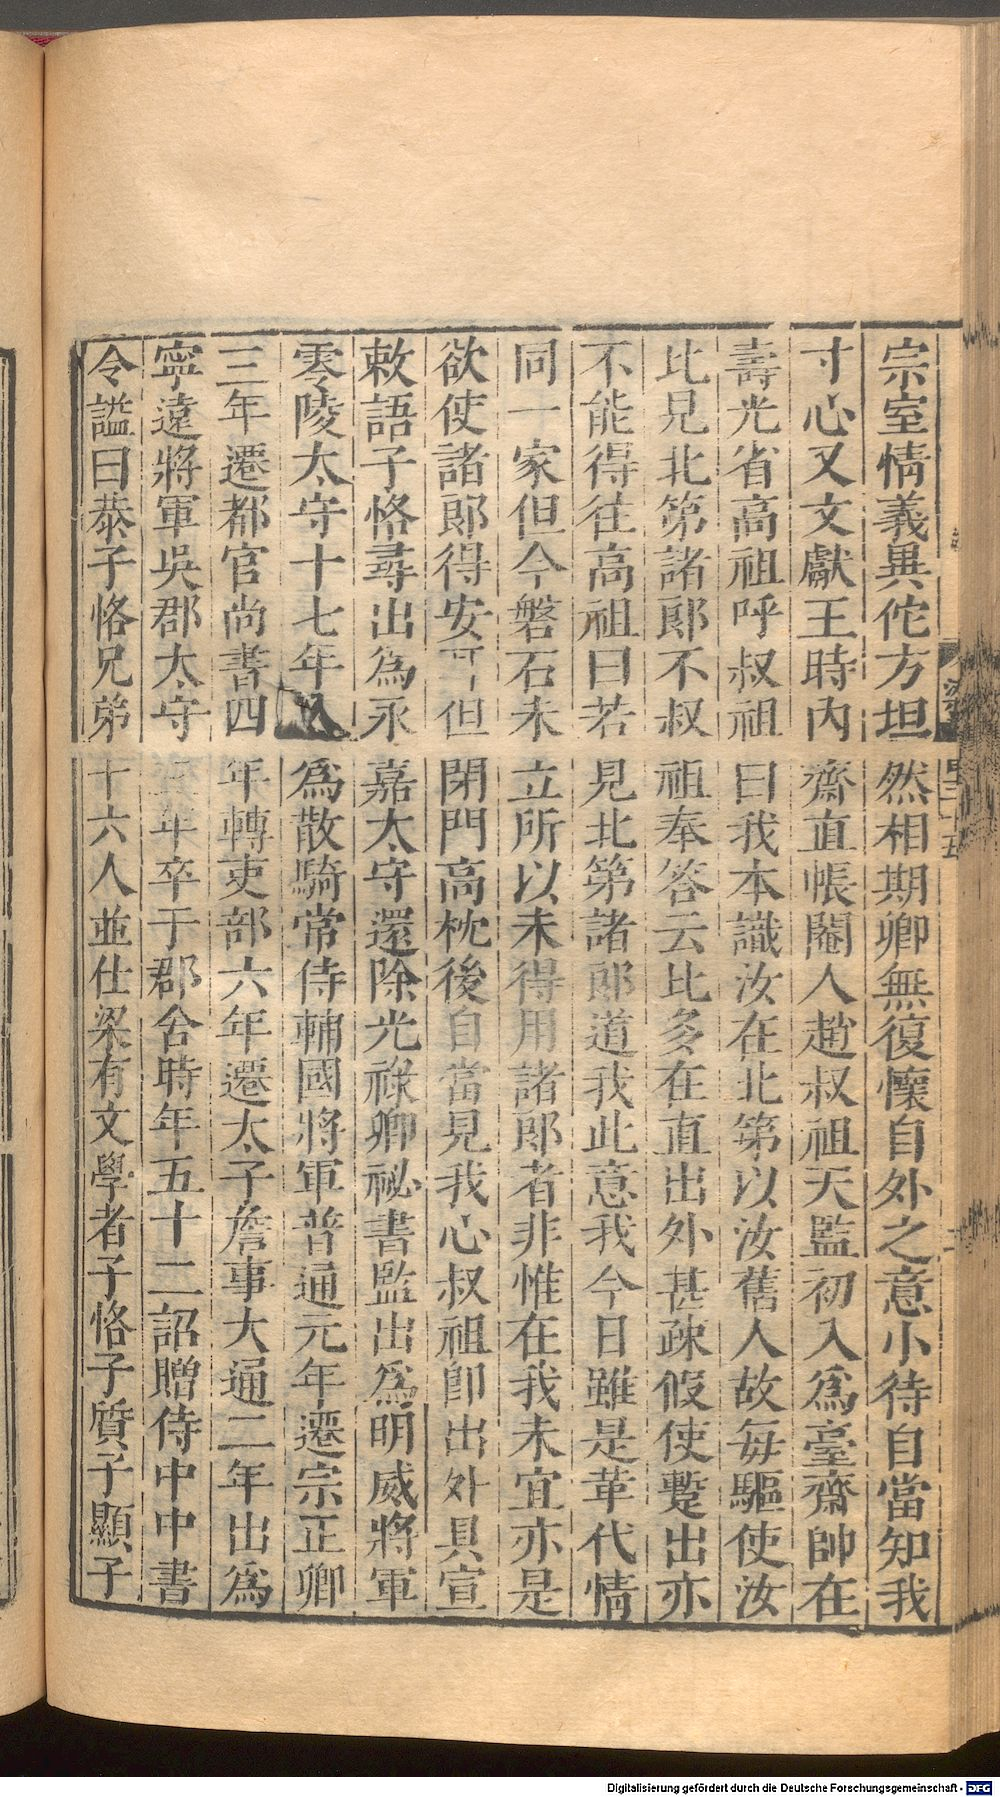 宗室情義異佗方坦然相期卿無復懷自外之意小待自當知我
寸心又文獻王時內齋直帳閹人趙叔祖天監初入爲臺齋帥在
壽光省高祖呼叔祖曰我本識汝在北第以汝舊人故每驅使汝
比見北第諸郎不叔祖奉答云比多在直出外甚疎假使蹔出亦
不能得往高祖曰若見北第諸郎道我此意我今日雖是革代情
同一家但今磐石未立所以未得用諸郎者非惟在我未宜亦是
欲使諸郎得安耳但閉門高枕後自當見我心叔祖即出外具宣
敕語子恪尋出爲永嘉太守還除光祿卿祕書監出爲明威將軍
零陵太守十七年入爲散騎常侍輔國將軍普通元年遷宗正卿
三年遷都官尚書四年轉吏部六年遷太子詹事大通二年出爲
寧遠將軍吳郡太守三年卒于郡舍時年五十二詔贈侍中中書
令諡曰恭子恪兄弟十六人並仕梁有文學者子恪子質子顯子
Digitalisierung gefördert durch die Deutsche Forschungsgemeinschaft - DFG